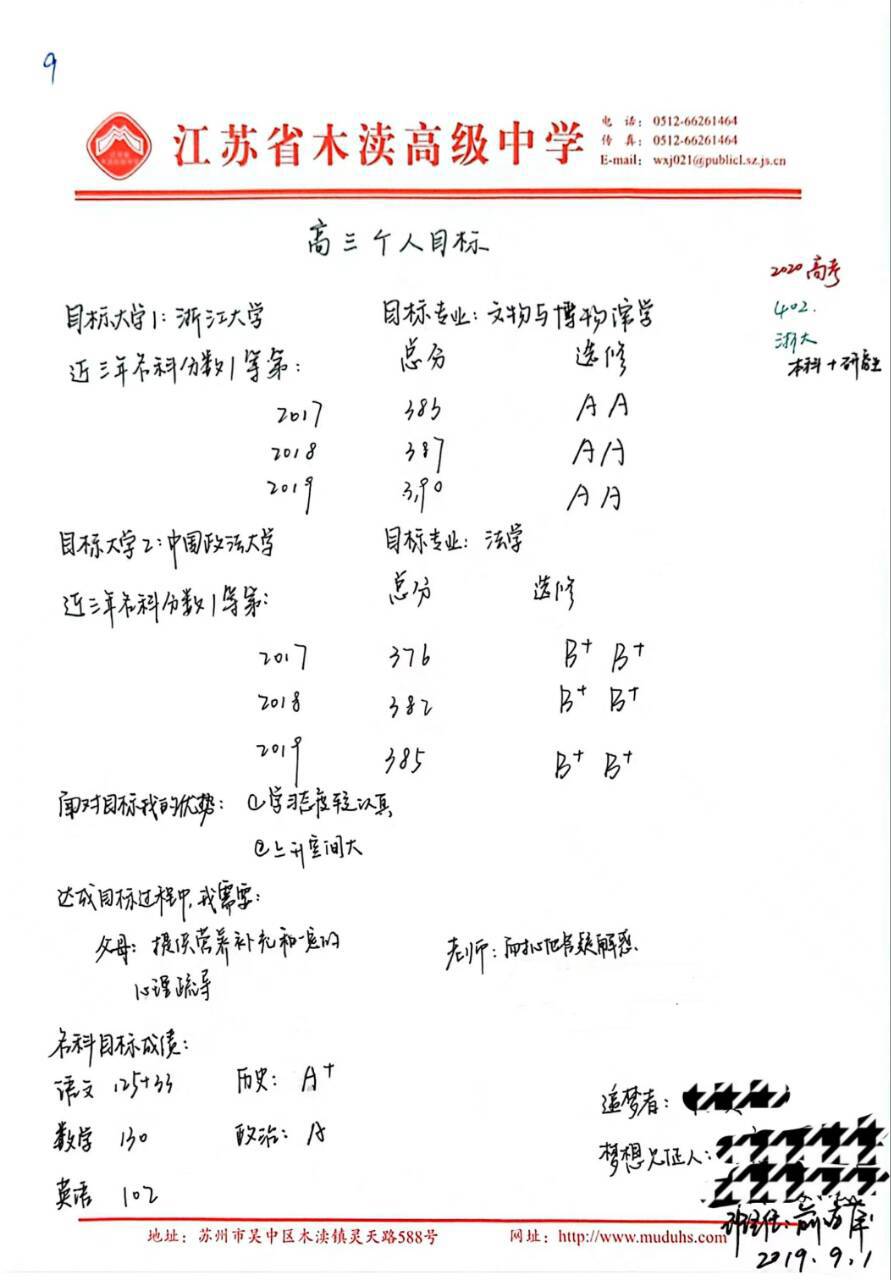 9
江苏省木渎高级中学
电 话: 0512-66261464
传 真: 0512-66261464
E-mail: wxj021@publicl.sz.js.cn
高三个人目标
2020高考
402.
浙大
本科+研究生
目标大学1: 浙江大学 目标专业: 文物与博物馆学
近三年各科分数/等第: 总分 选修
2017 383 A A
2018 387 A A
2019 390 A A
目标大学2: 中国政法大学 目标专业: 法学
近三年各科分数/等第: 总分 选修
2017 376 B+ B+
2018 382 B+ B+
2019 385 B+ B+
面对目标我的优势: ①学习态度较认真
②上升空间大
达成目标过程中,我需要:
父母: 提供营养补充和一定的
心理疏导
老师: 耐心地答疑解惑.
各科目标成绩:
语文 125+33 历史: A+
数学 130 政治: A
英语 102
追梦者:
梦想见证人:
班主任:
2019.9.1
地址: 苏州市吴中区木渎镇灵天路588号 网址: http://www.muduhs.com